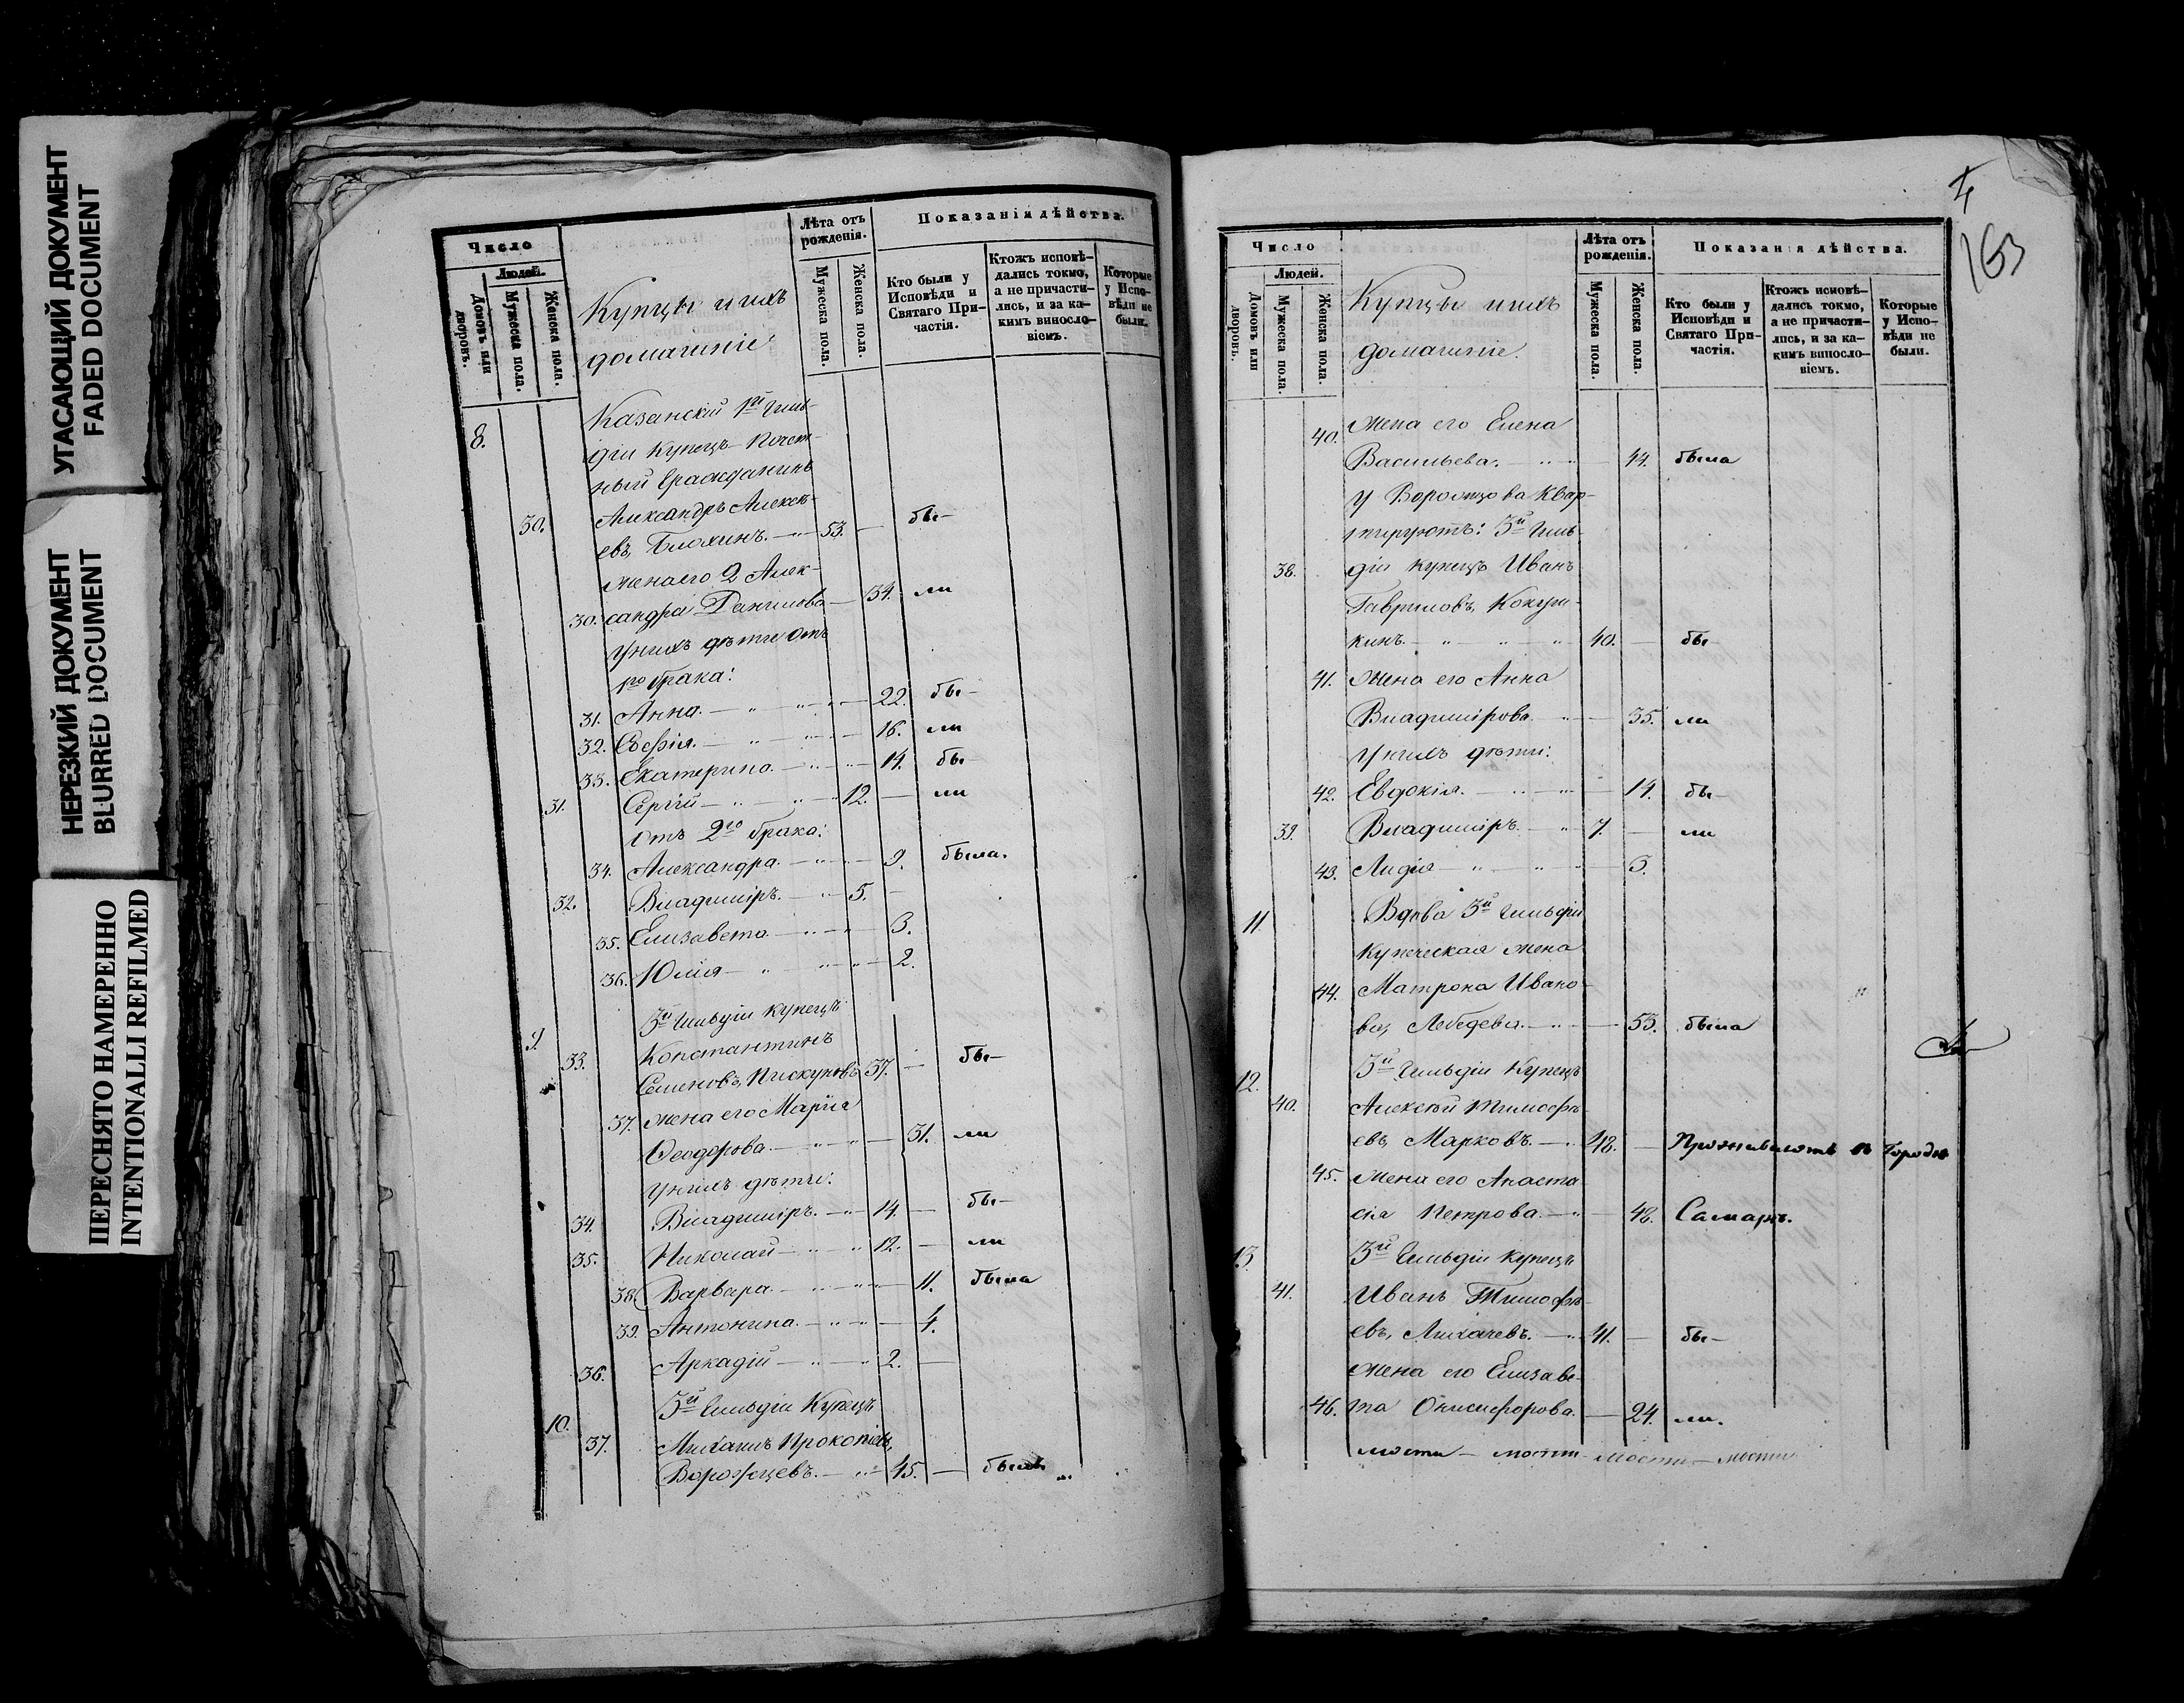 УГАСАЮЩИЙ ДОКУМЕНТ
FADED DOCUMENT
НЕРЕЗКИЙ ДОКУМЕНТ
BLURRED DOCUMENT
ПЕРЕСНЯТО НАМЕРЕННО
INTENTIONALLI REFILMED
Число
Людей.
Домовъ или дворовъ.
Мужеска пола.
Женска пола.
Купцы и ихъ
домашніе
Лѣта отъ рожденія.
Мужеска пола.
Женска пола.
Показанія дѣйства.
Кто были у Исповѣди и Святаго Причастія.
Ктожъ исповѣдались токмо, а не причастились, и за какимъ винословіемъ.
Которые у Исповѣди не были.
8. Казанскій 1й Гиль-
діи Купецъ Почет-
ный Гражданинъ
30. Александръ Алексѣ-
евъ, Блохинъ. 53. — бы-
жена его 2 Алек-
30. сандра Данилова — 34. ли
У нихъ дѣти отъ
1го брака:
31. Анна. — 22. бы-
32. Софія. — 16. ли
33. Екатерина. — 14. бы-
31. Сергій — 12. — ли
отъ 2го брака:
34. Александра. — 9. была.
32. Владиміръ. — 5. —
35. Елизавета — 3.
36. Юлія — 2.
9. 3й Гильдіи Купецъ
33. Константинъ
Семеновъ, Пискуновъ 37. — бы-
37. жена его Марія
Ѳеодорова. — 31. ли
У нихъ дѣти:
34. Владиміръ. — 14. — бы-
35. Николай — 12. — ли
38. Варвара. — 11. была
39. Антонина. — 4.
36. Аркадій — 2. —
10. 3й Гильдіи Купецъ
37. Михаилъ Прокопіевъ,
Ворожцевъ. — 45. — былъ
4
163
Число
Людей.
Домовъ или дворовъ.
Мужеска пола
Женска пола.
Купцы и ихъ
домашніе.
Лѣта отъ рожденія.
Мужеска пола.
Женска пола.
Показанія дѣйства.
Кто были у Исповѣди и Святаго Причастія.
Ктожъ исповѣдались токмо, а не причастились, и за какимъ винословіемъ.
Которые у Исповѣди не были.
40. жена его Елена
Васильева. — 44. была
У Ворожцова Квар-
тируютъ: 3й Гиль-
38. діи Купецъ Иванъ
Гавриловъ, Кокуш-
кинъ. — 40. — бы-
41. жена его Анна
Владимірова. — 35. ли
У нихъ дѣти:
42. Евдокія. — 14. бы-
39. Владиміръ. — 7. — ли
43. Лидія — 3.
11 Вдова 3й Гильдіи
Купеческая жена
44. Матрона Ивано-
ва, Лебедева. — 53. была
12. 3й Гильдіи Купецъ
40. Алексѣй Тимофѣ-
евъ, Марковъ. — 48. — Проживаютъ въ Городѣ
45. Жена его Анаста-
сія Петрова. — 48. Самарѣ.
13 3й Гильдіи Купецъ
41. Иванъ Тимофѣ-
евъ, Лихачевъ. — 41. — бы-
жена его Елизаве-
46. та Онисифорова. — 24. ли.